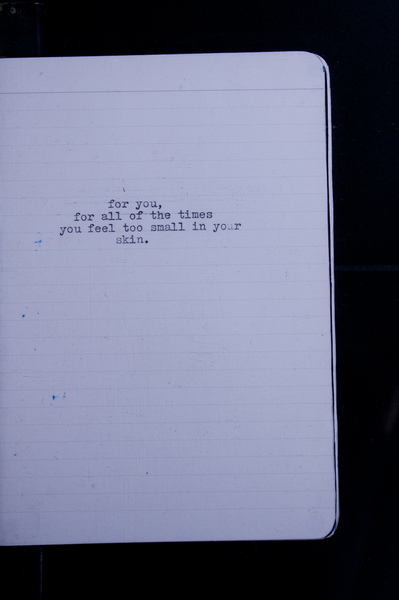 for you,
for all of the times
you feel too small in your
skin.